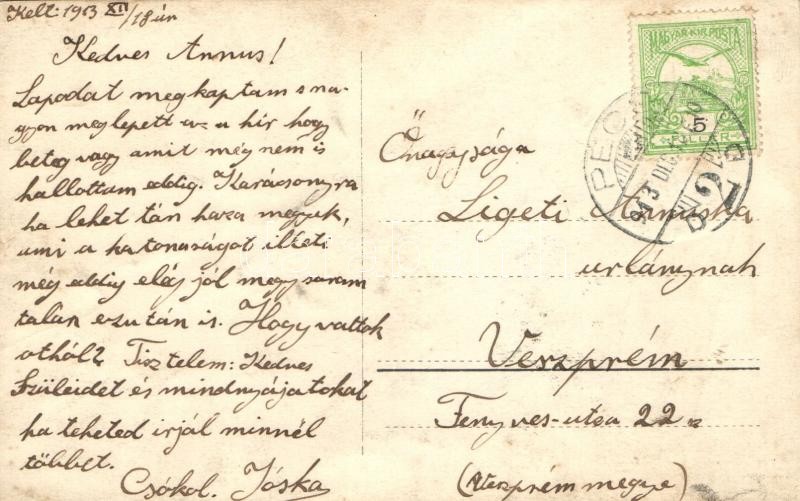 Kelt: 1913 XII/18-án
Kedves Annus!
Lapodat megkaptam s na-
gyon meglepett az a hír hogy
beteg vagy amit még nem is
hallottam eddig. Karácsonyra
ha lehet tán haza megyük,
ami a katonaságot illeti
még eddig elég jól megy
talan ezután is. Hogy vattok
othól? Tisztelem: Kedves
Szüleidet és mindnyájatokat
ha teheted irjál minnél
többet.
Csókol. Jóska
MAGYAR KIR. POSTA
5
FILLÉR
PÉCS
913 DEC
2
Őnagysága
Ligeti Annuska
urlánynak
Veszprém
Fenyves-utca 22 sz
(Veszprém megye)